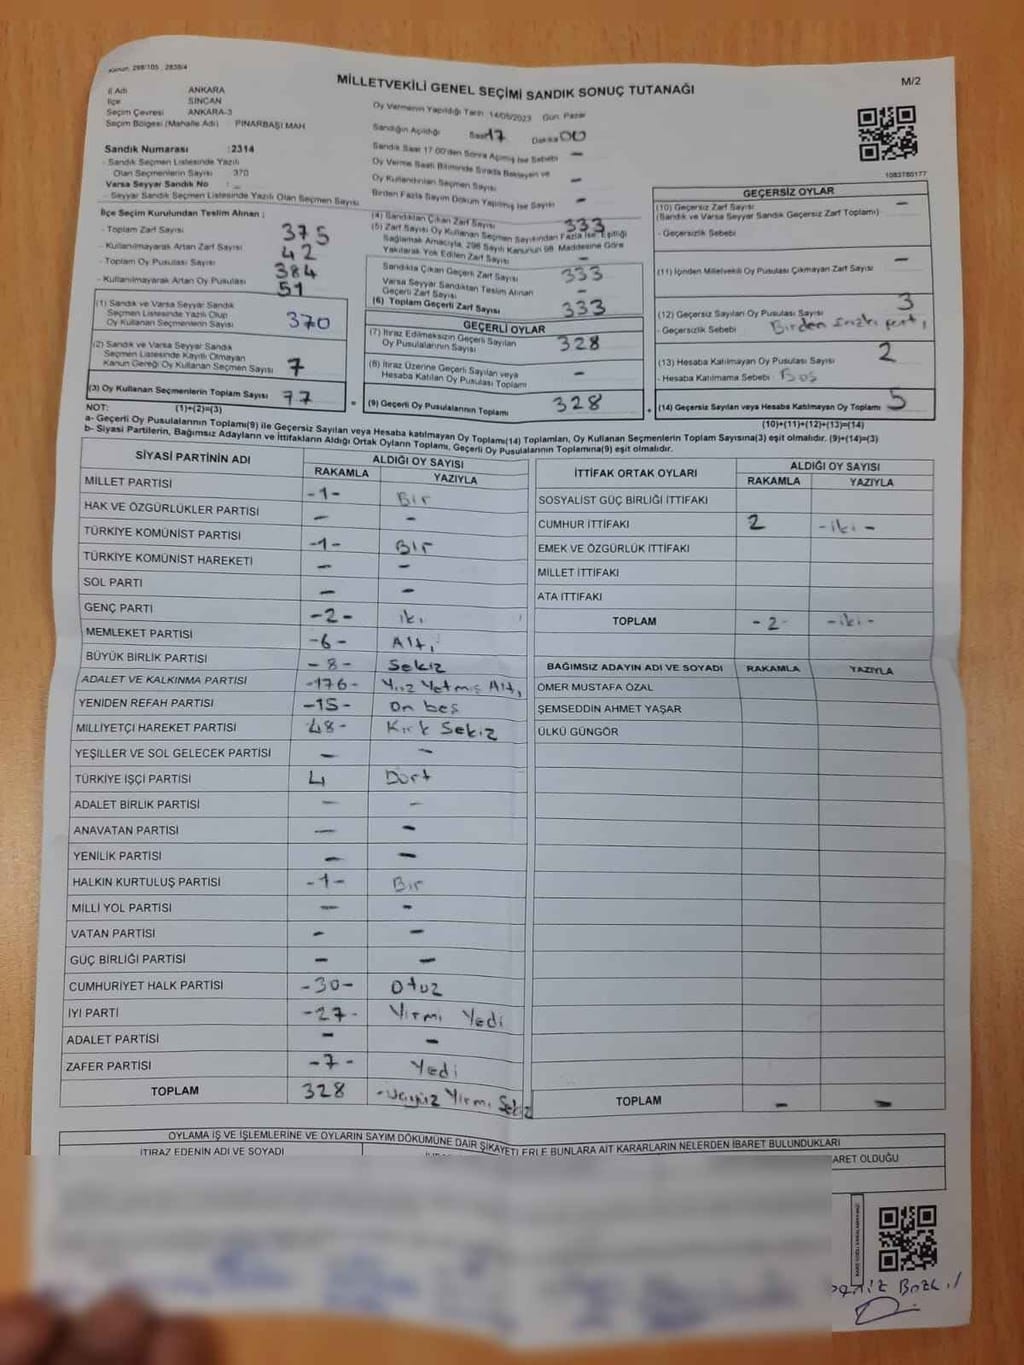 Kanun: 298/105 , 2839/4
MİLLETVEKİLİ GENEL SEÇİMİ SANDIK SONUÇ TUTANAĞI
M/2
İl Adı ANKARA
İlçe SİNCAN
Seçim Çevresi ANKARA-3
Seçim Bölgesi (Mahalle Adı) PINARBAŞI MAH
Sandık Numarası :2314
- Sandık Seçmen Listesinde Yazılı
Olan Seçmenlerin Sayısı 370
Varsa Seyyar Sandık No :
- Seyyar Sandık Seçmen Listesinde Yazılı Olan Seçmen Sayısı
Oy Vermenin Yapıldığı Tarih 14/05/2023 Gün: Pazar
Sandığın Açıldığı Saat 17 Dakika 00
Sandık Saat 17:00'den Sonra Açılmış İse Sebebi -
Oy Verme Saati Bitiminde Sırada Bekleyen ve
Oy Kullandırılan Seçmen Sayısı -
Birden Fazla Sayım Döküm Yapılmış İse Sayısı -
1083780177
İlçe Seçim Kurulundan Teslim Alınan :
- Toplam Zarf Sayısı 375
- Kullanılmayarak Artan Zarf Sayısı 42
- Toplam Oy Pusulası Sayısı 384
- Kullanılmayarak Artan Oy Pusulası 51
(1) Sandık ve Varsa Seyyar Sandık
Seçmen Listesinde Yazılı Olup
Oy Kullanan Seçmenlerin Sayısı 370
(2) Sandık ve Varsa Seyyar Sandık
Seçmen Listesinde Kayıtlı Olmayan
Kanun Gereği Oy Kullanan Seçmen Sayısı 7
(3) Oy Kullanan Seçmenlerin Toplam Sayısı 77
(1)+(2)=(3)
(4) Sandıktan Çıkan Zarf Sayısı 333
(5) Zarf Sayısı Oy Kullanan Seçmen Sayısından Fazla İse, Eşitliği
Sağlamak Amacıyla, 298 Sayılı Kanunun 98. Maddesine Göre
Yakılarak Yok Edilen Zarf Sayısı -
Sandıkta Çıkan Geçerli Zarf Sayısı 333
Varsa Seyyar Sandıktan Teslim Alınan
Geçerli Zarf Sayısı -
(6) Toplam Geçerli Zarf Sayısı 333
GEÇERLİ OYLAR
(7) İtiraz Edilmeksizin Geçerli Sayılan
Oy Pusulalarının Sayısı 328
(8) İtiraz Üzerine Geçerli Sayılan veya
Hesaba Katılan Oy Pusulası Toplamı -
= (9) Geçerli Oy Pusulalarının Toplamı 328
GEÇERSİZ OYLAR
(10) Geçersiz Zarf Sayısı -
(Sandık ve Varsa Seyyar Sandık Geçersiz Zarf Toplamı)
- Geçersizlik Sebebi
(11) İçinden Milletvekili Oy Pusulası Çıkmayan Zarf Sayısı -
(12) Geçersiz Sayılan Oy Pusulası Sayısı 3
- Geçersizlik Sebebi Birden
(13) Hesaba Katılmayan Oy Pusulası Sayısı 2
- Hesaba Katılmama Sebebi Boş
+ (14) Geçersiz Sayılan veya Hesaba Katılmayan Oy Toplamı 5
(10)+(11)+(12)+(13)=(14)
NOT:
a- Geçerli Oy Pusulalarının Toplamı(9) ile Geçersiz Sayılan veya Hesaba katılmayan Oy Toplamı(14) Toplamları, Oy Kullanan Seçmenlerin Toplam Sayısına(3) eşit olmalıdır. (9)+(14)=(3)
b- Siyasi Partilerin, Bağımsız Adayların ve İttifakların Aldığı Ortak Oyların Toplamı, Geçerli Oy Pusulalarının Toplamına(9) eşit olmalıdır.
SİYASİ PARTİNİN ADI ALDIĞI OY SAYISI
RAKAMLA YAZIYLA
MİLLET PARTİSİ -1- Bir
HAK VE ÖZGÜRLÜKLER PARTİSİ - -
TÜRKİYE KOMÜNİST PARTİSİ -1- Bir
TÜRKİYE KOMÜNİST HAREKETİ - -
SOL PARTİ - -
GENÇ PARTİ -2- iki
MEMLEKET PARTİSİ -6- Altı
BÜYÜK BİRLİK PARTİSİ -8- Sekiz
ADALET VE KALKINMA PARTİSİ -176- Yüz Yetmiş Altı
YENİDEN REFAH PARTİSİ -15- On beş
MİLLİYETÇİ HAREKET PARTİSİ 48- Kırk Sekiz
YEŞİLLER VE SOL GELECEK PARTİSİ - -
TÜRKİYE İŞÇİ PARTİSİ 4 Dört
ADALET BİRLİK PARTİSİ - -
ANAVATAN PARTİSİ - -
YENİLİK PARTİSİ - -
HALKIN KURTULUŞ PARTİSİ -1- Bir
MİLLİ YOL PARTİSİ - -
VATAN PARTİSİ - -
GÜÇ BİRLİĞİ PARTİSİ - -
CUMHURİYET HALK PARTİSİ -30- Otuz
İYİ PARTİ -27- Yirmi Yedi
ADALET PARTİSİ - -
ZAFER PARTİSİ -7- Yedi
TOPLAM 328 -Üçyüz Yirmi Sekiz
İTTİFAK ORTAK OYLARI ALDIĞI OY SAYISI
RAKAMLA YAZIYLA
SOSYALİST GÜÇ BİRLİĞİ İTTİFAKI
CUMHUR İTTİFAKI 2 -iki-
EMEK VE ÖZGÜRLÜK İTTİFAKI
MİLLET İTTİFAKI
ATA İTTİFAKI
TOPLAM -2- -iki-
BAĞIMSIZ ADAYIN ADI VE SOYADI RAKAMLA YAZIYLA
ÖMER MUSTAFA ÖZAL
ŞEMSEDDİN AHMET YAŞAR
ÜLKÜ GÜNGÖR
TOPLAM - -
OYLAMA İŞ VE İŞLEMLERİNE VE OYLARIN SAYIM DÖKÜMÜNE DAİR ŞİKAYETLERLE BUNLARA AİT KARARLARIN NELERDEN İBARET BULUNDUKLARI
İTİRAZ EDENİN ADI VE SOYADI
ARET OLDUĞU